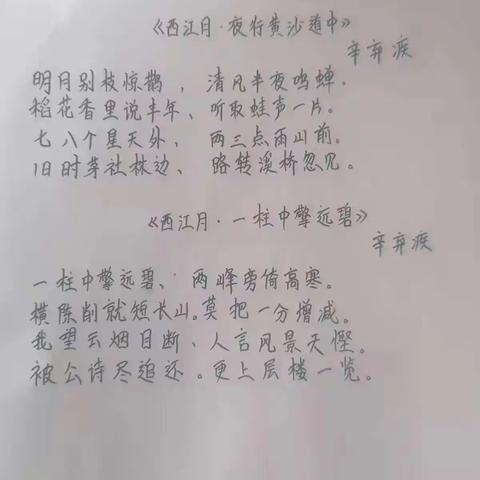 《西江月·夜行黄沙道中》
辛弃疾
明月别枝惊鹊，清风半夜鸣蝉.
稻花香里说丰年、听取蛙声一片。
七八个星天外、两三点雨山前。
旧时茅社林边、路转溪桥忽见。
《西江月·一柱中擎远碧》
辛弃疾
一柱中擎远碧、两峰旁倚高寒。
横陈削就短长山。莫把一分增减。
我望云烟目断、人言风景天悭。
被公诗尽追还。更上层楼一览。